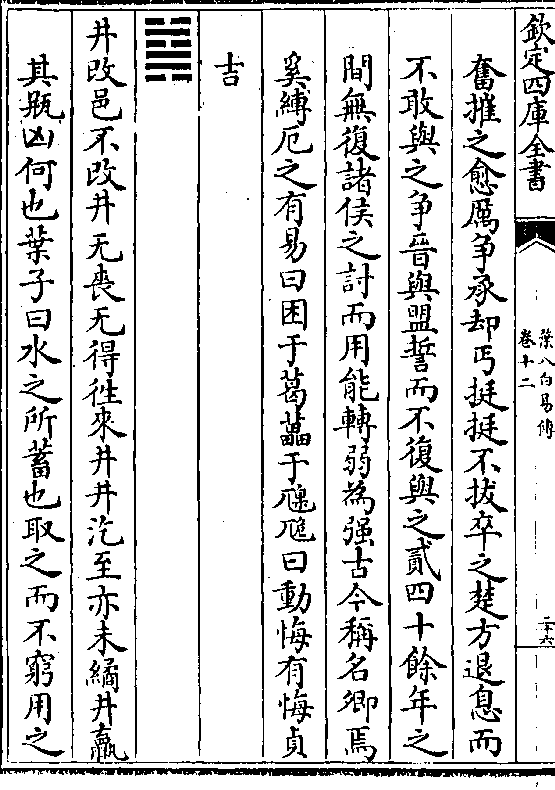 欽定四庫全書
葉八白易傳
卷十二
二十六
奮摧之愈厲爭承却丐挺挺不拔卒之楚方退息而
不敢與之爭晉與盟誓而不復與之貳四十餘年之
間無復諸侯之討而用能轉弱為强古今稱名卿焉
奚縛厄之有易曰困于葛藟于臲卼曰動悔有悔貞
吉
䷯
井改邑不改井无喪无得徃來井井汔至亦未繘井羸
其瓶凶何也葉子曰水之所蓄也取之而不窮用之